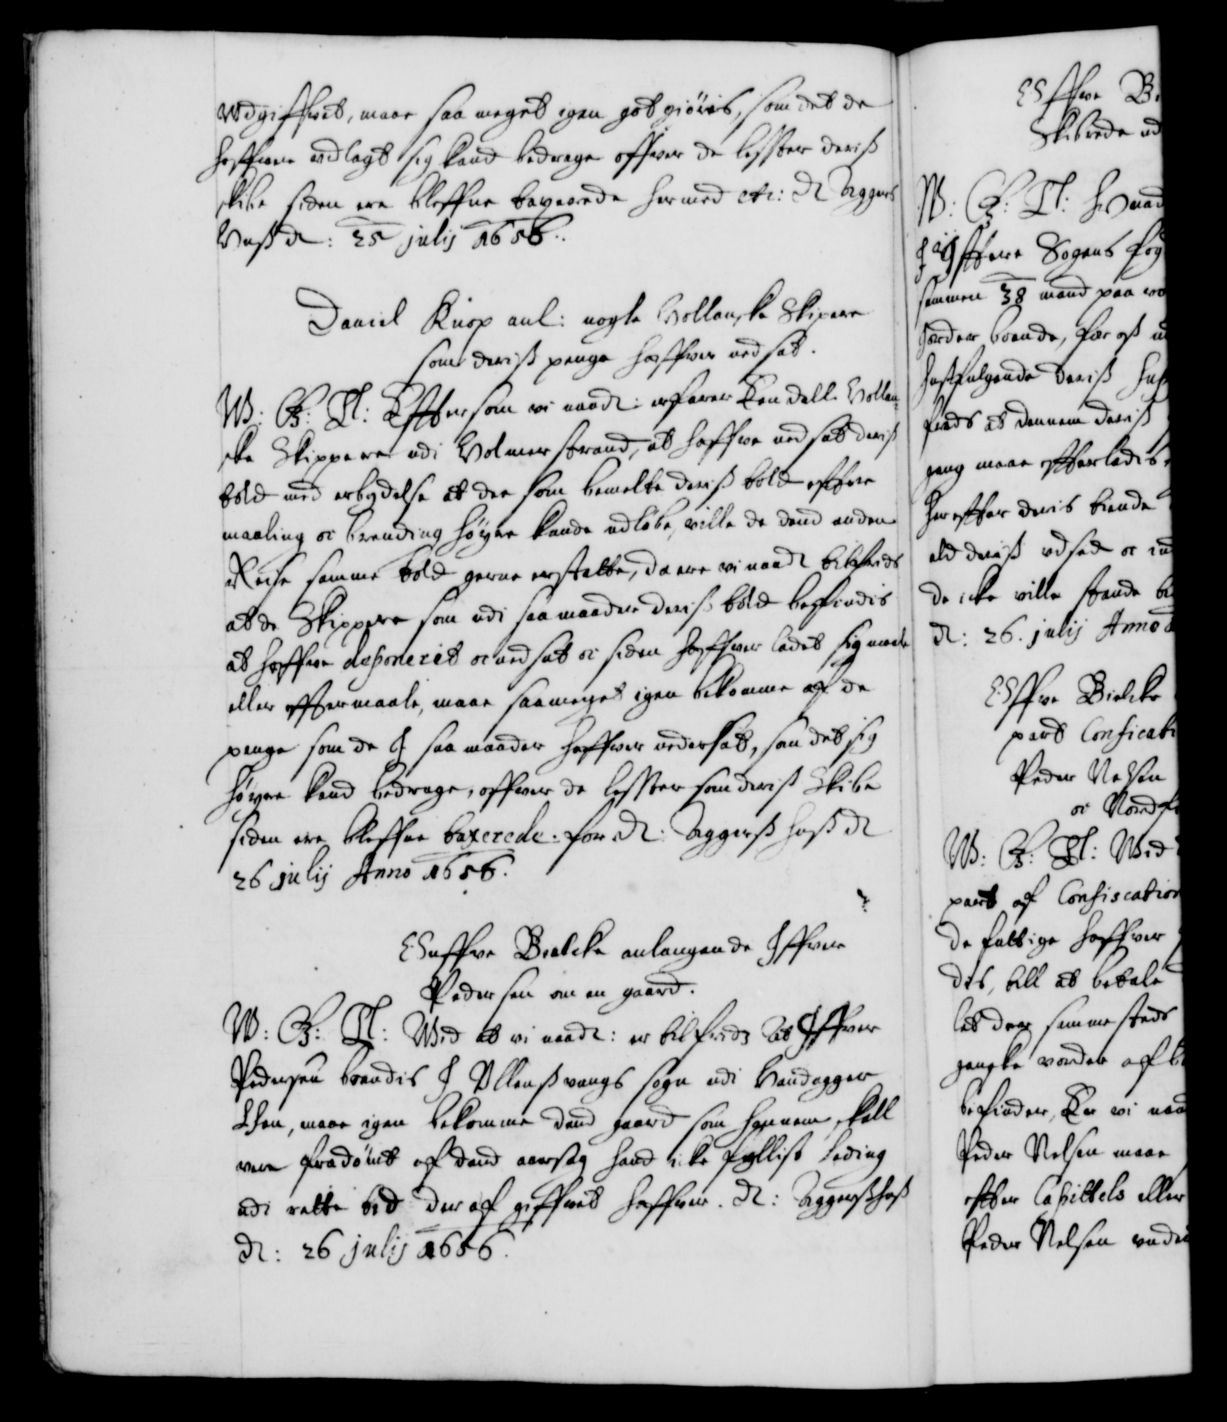 Wdgiffwet, maae saa meget igen got giöris, som det de
haffwer udlagt sig kand bedrage offwer de lester deriß
skibe siden ere bleffne taxerede hermed etc: dt Aggers
Huß dt: 25 julij 1656.
Daniel Knop anl: nogle Hollanske Skipere
som deriß penge haffwer nedsat.
W: G: T: Efftersom wi naadt: erfarer Een deell Hollan¬
ske Skippere udi Holmerstrand, at haffwe nedsat deriß
told med erbydelse at der som bemelte deriß told effter
maaling oc brending höyre kunde udlöbe, wille de dend anden
Reise samme told gerne erstatte, da ere wi naadt tilfrids
at de Skippere som udi saa maader deriß told befindis
at haffwe deponerit oc nedsat oc siden haffwer ladet sig maale
eller offwermaale, maae saameget igen bekomme af de
penge som de I saa maader haffwer nedersat, som det sig
höyre kand bedrage, offwer de lester som deriß Skibe
siden ere bleffne taxerede. for dt: Aggerß huß dt
26 julij Anno 1656.
Ouffwe Bielcke anlangende Iffwer
Pedersen om en gaard.
W: G: T: Wid at wi naadt: er tilfridz At Iffwer
Pedersen boendis I Ullenßwangs sogn udi Hardagger
Lhen, maae igen bekomme dend gaard som hannem skall
were fradömt af dend aarsag hand icke fyllist leding
udi rette tid der af giffwet haffwer. dt: Aggerßhuß
dt: 26 julij 1656.
Offwe Bi
Skibrede ud
W: G: T: H
I Sogens fog
sammen 38 mand paa
gorder boende, for oß
hosfulgende deriß
freds at dennem deriß
gang maae effterladis
hereffter deris tiende
ald deriß udsed oc ind
de icke wille stande
dt: 26. julij Anno
Offwe Bielcke
part Conficati
Peder Nelsen
oc Nordf
W: G: T: Wid
part af Confiscation
de fattige haffwer
dis, till at betale
let der sammesteds
gangte
befinder, Er wi naad
Peder Nelsen maae
effter Capittels eller
Peder Nelsen unde